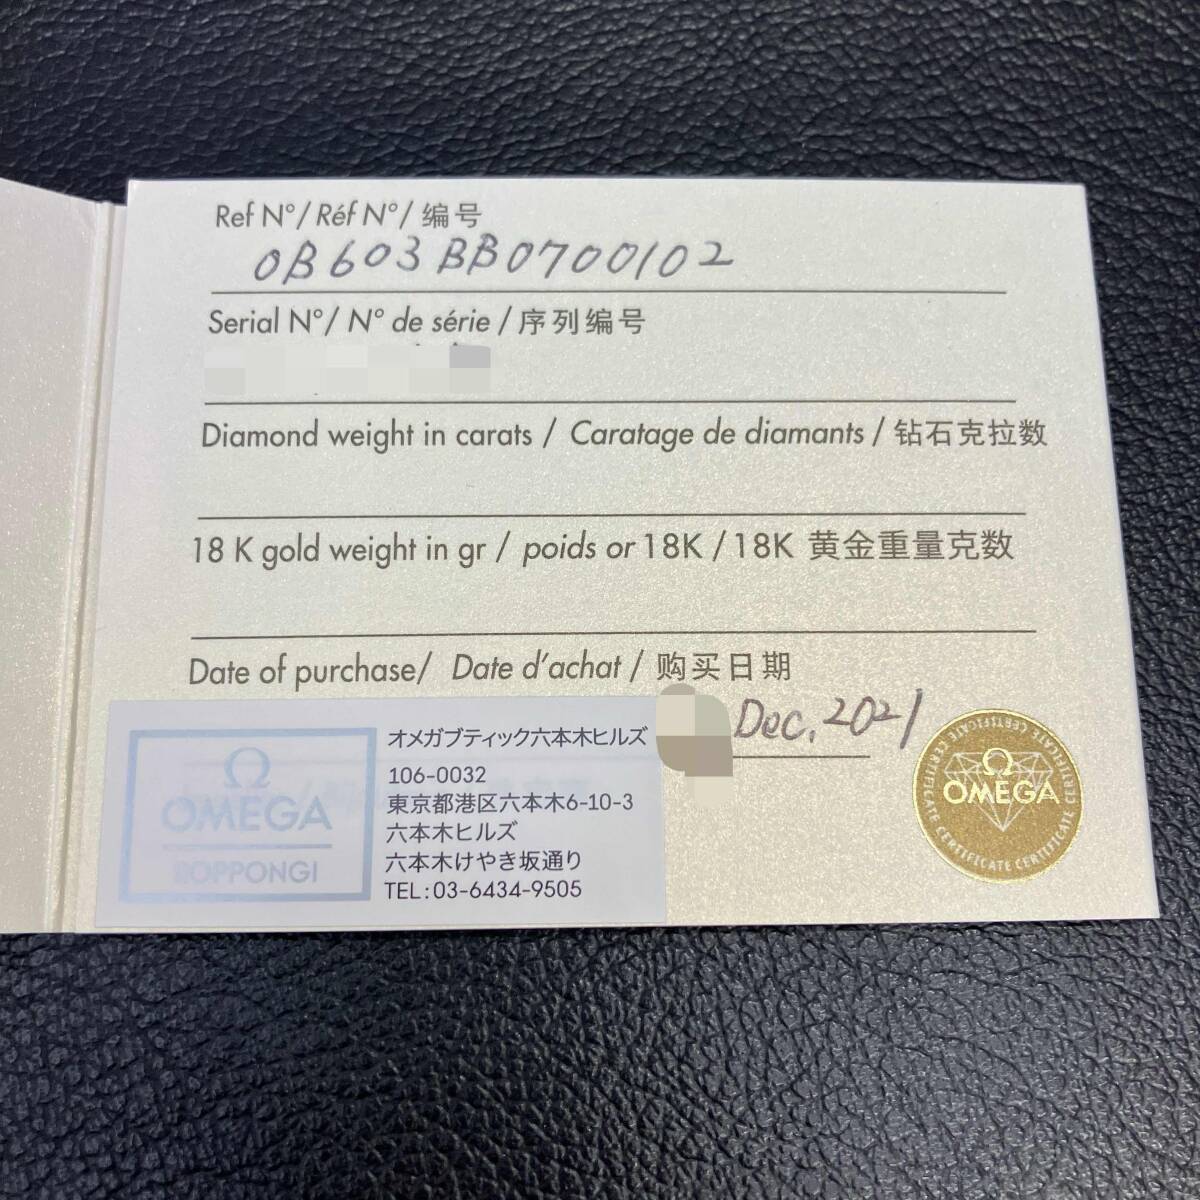 Ref N°/Réf N°/编号
OB603BB0700102
Serial N°/ N° de série /序列编号
Diamond weight in carats / Caratage de diamants / 钻石克拉数
18 K gold weight in gr / poids or 18K / 18K 黄金重量克数
Date of purchase/ Date d'achat / 购买日期
Dec, 2021
Ω
OMEGA
ROPPONGI
オメガブティック六本木ヒルズ
106-0032
東京都港区六本木6-10-3
六本木ヒルズ
六本木けやき坂通り
TEL:03-6434-9505
Ω
OMEGA
CERTIFICATE CERTIFICATE CERTIFICATE CERTIFICATE CERTIFICATE